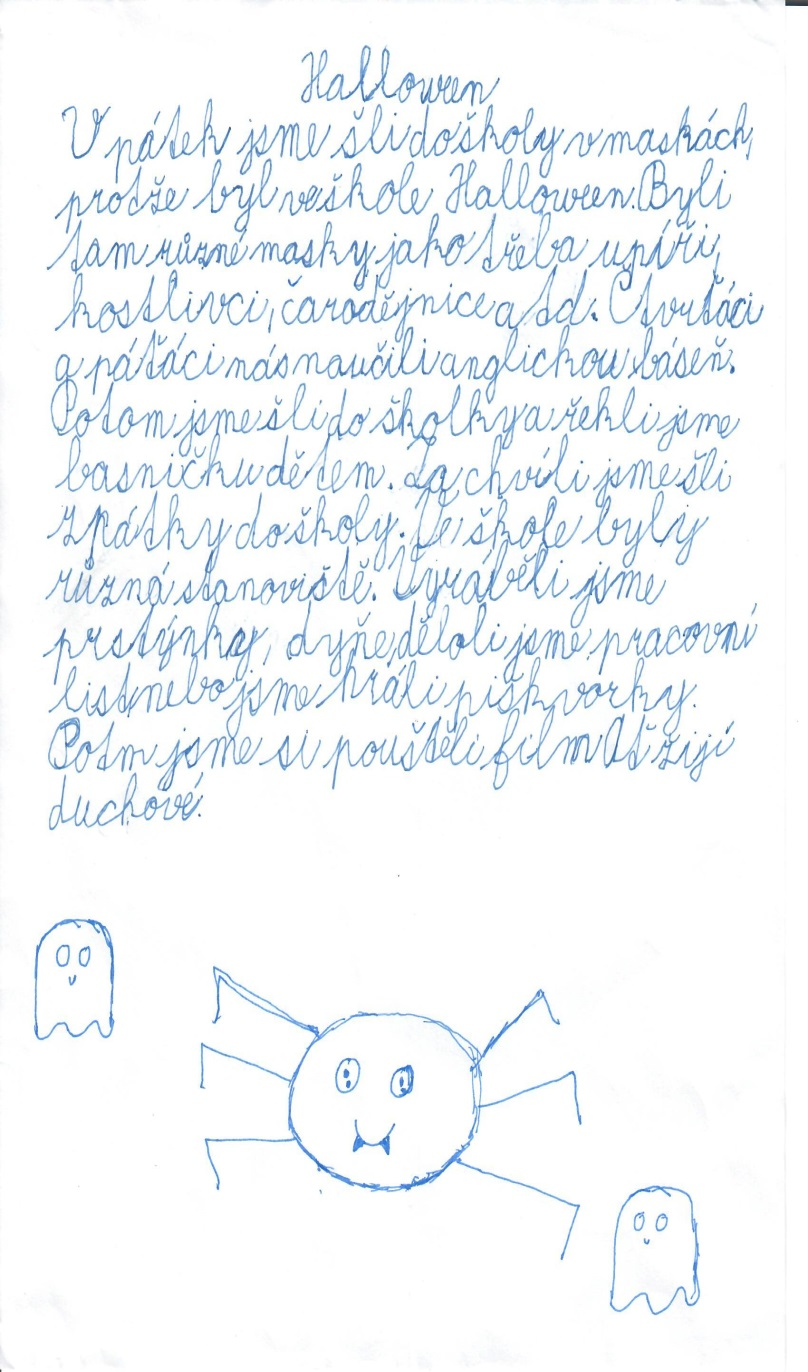 Hallowen
V pátek jsme šli do školy v maskách,
protže byl ve škole Hallowen. Byli
tam různé masky jako třeba upíři,
kostlivci, čarodějnice a td. Čtvrťáci
a páťáci nás naučili anglickou báseň.
Potom jsme šli do školky a řekli jsme
basničku dětem. Za chvíli jsme šli
zpátky do školy. Ve škole byly
různá stanoviště. Vyráběli jsme
prstýnky, dyňe, děloli jsme pracovní
list nebo jsme hráli piškvorky.
Potm jsme si pouštěli film Ať žijí
duchové.